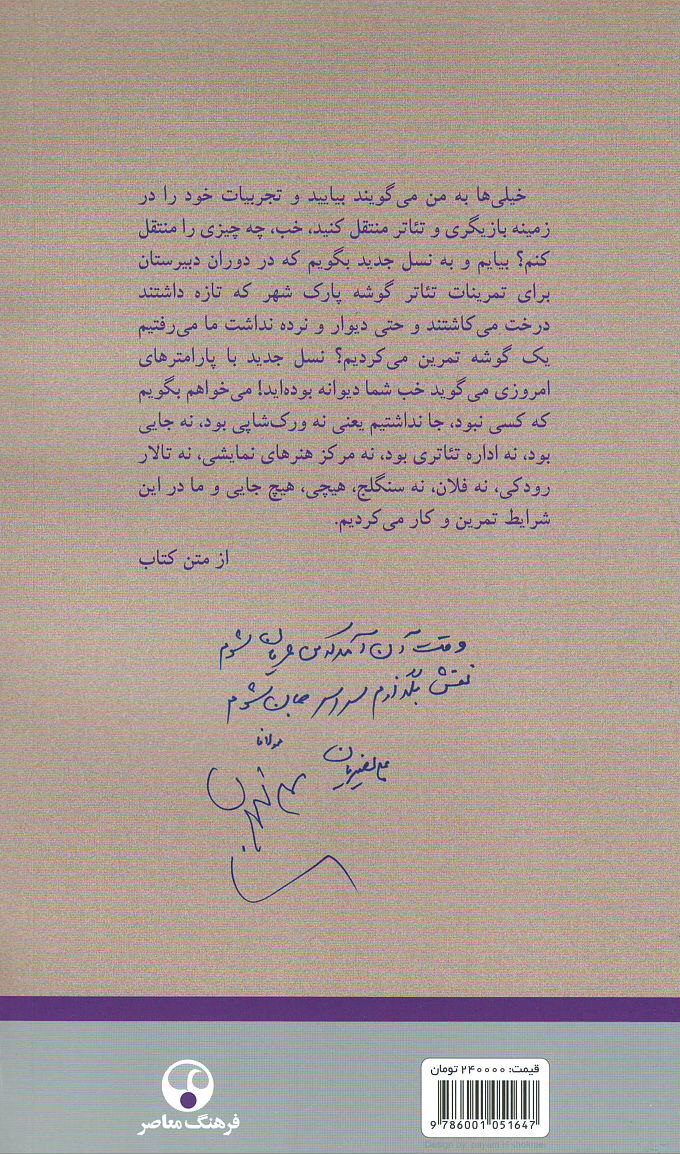 خیلی‌ها به من می‌گویند بیایید و تجربیات خود را در
زمینه بازیگری و تئاتر منتقل کنید، خب، چه چیزی را منتقل
کنم؟ بیایم و به نسل جدید بگویم که در دوران دبیرستان
برای تمرینات تئاتر گوشه پارک شهر که تازه داشتند
درخت می‌کاشتند و حتی دیوار و نرده نداشت ما می‌رفتیم
یک گوشه تمرین می‌کردیم؟ نسل جدید با پارامترهای
امروزی می‌گوید خب شما دیوانه بوده‌اید! می‌خواهم بگویم
که کسی نبود، جا نداشتیم یعنی نه ورک‌شاپی بود، نه جایی
بود، نه اداره تئاتری بود، نه مرکز هنرهای نمایشی، نه تالار
رودکی، نه فلان، نه سنگلج، هیچی، هیچ جایی و ما در این
شرایط تمرین و کار می‌کردیم.
از متن کتاب
وقت آن آمد که من عریان شوم
نقش بگذارم سراسر جان شوم
مولانا
علی نصیریان
قیمت: ۲۴۰۰۰۰ تومان
9 786001 051647
فرهنگ معاصر